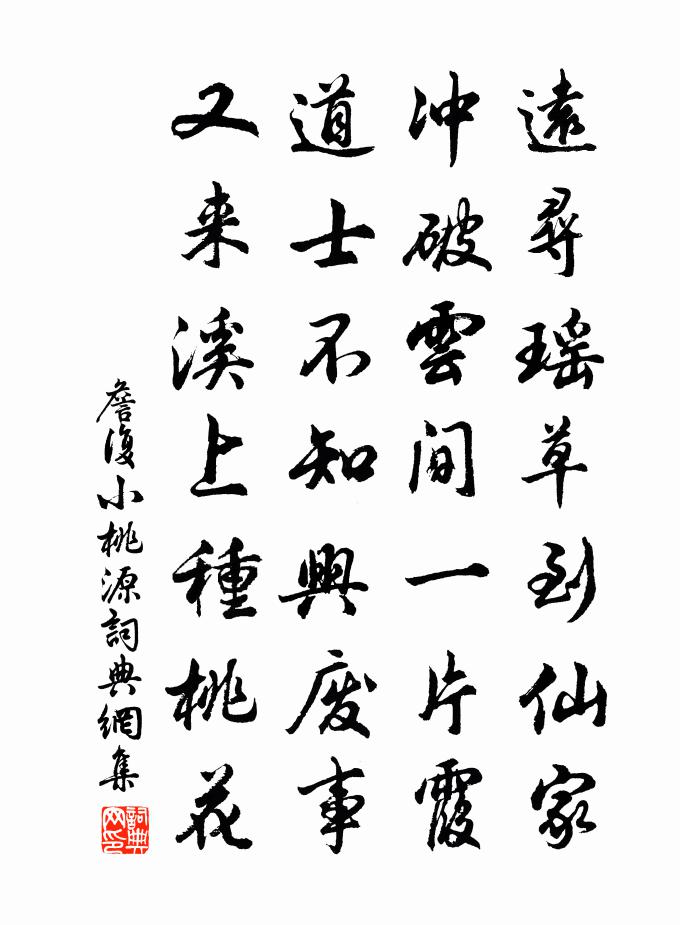 遠尋瑶草到仙家
冲破雲間一片霞
道士不知興廢事
又来溪上種桃花
詹復小桃源詞典網集
詞典网印